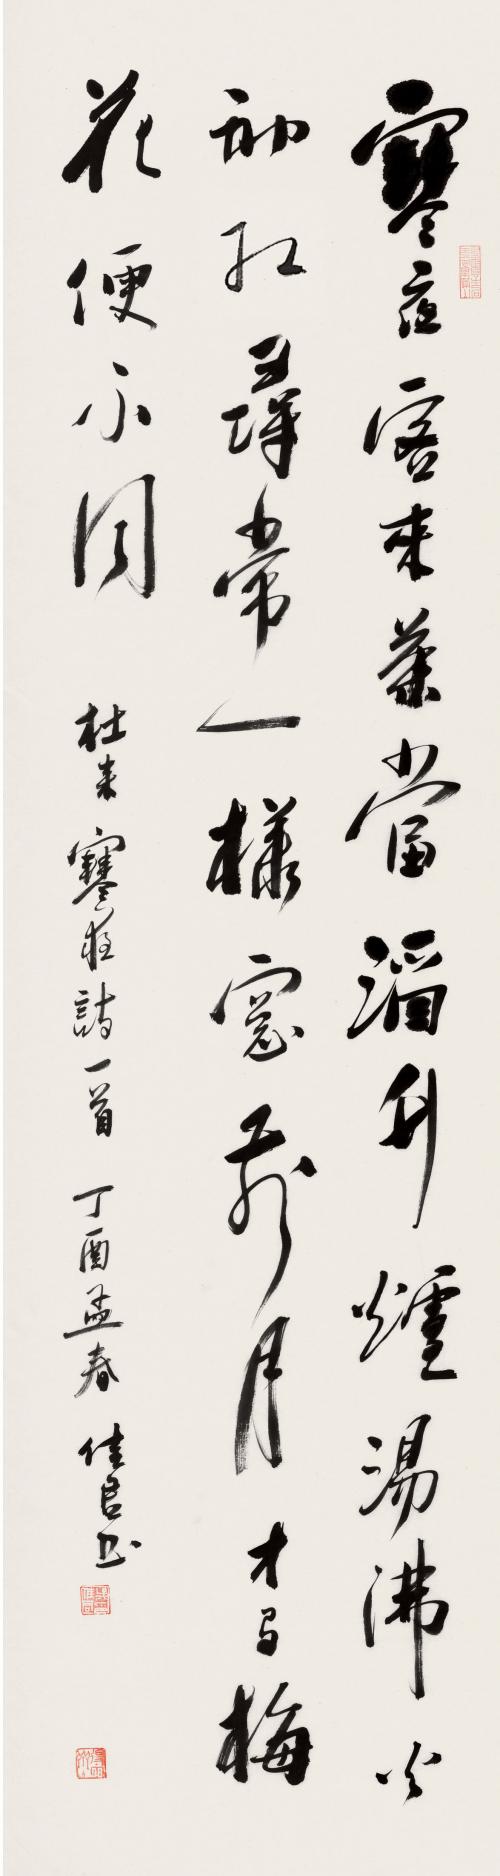 寒夜客來茶當酒竹爐湯沸火
初紅尋常一樣窗前月才有梅
花便不同
杜耒寒夜詩一首 丁酉孟春 佳君书